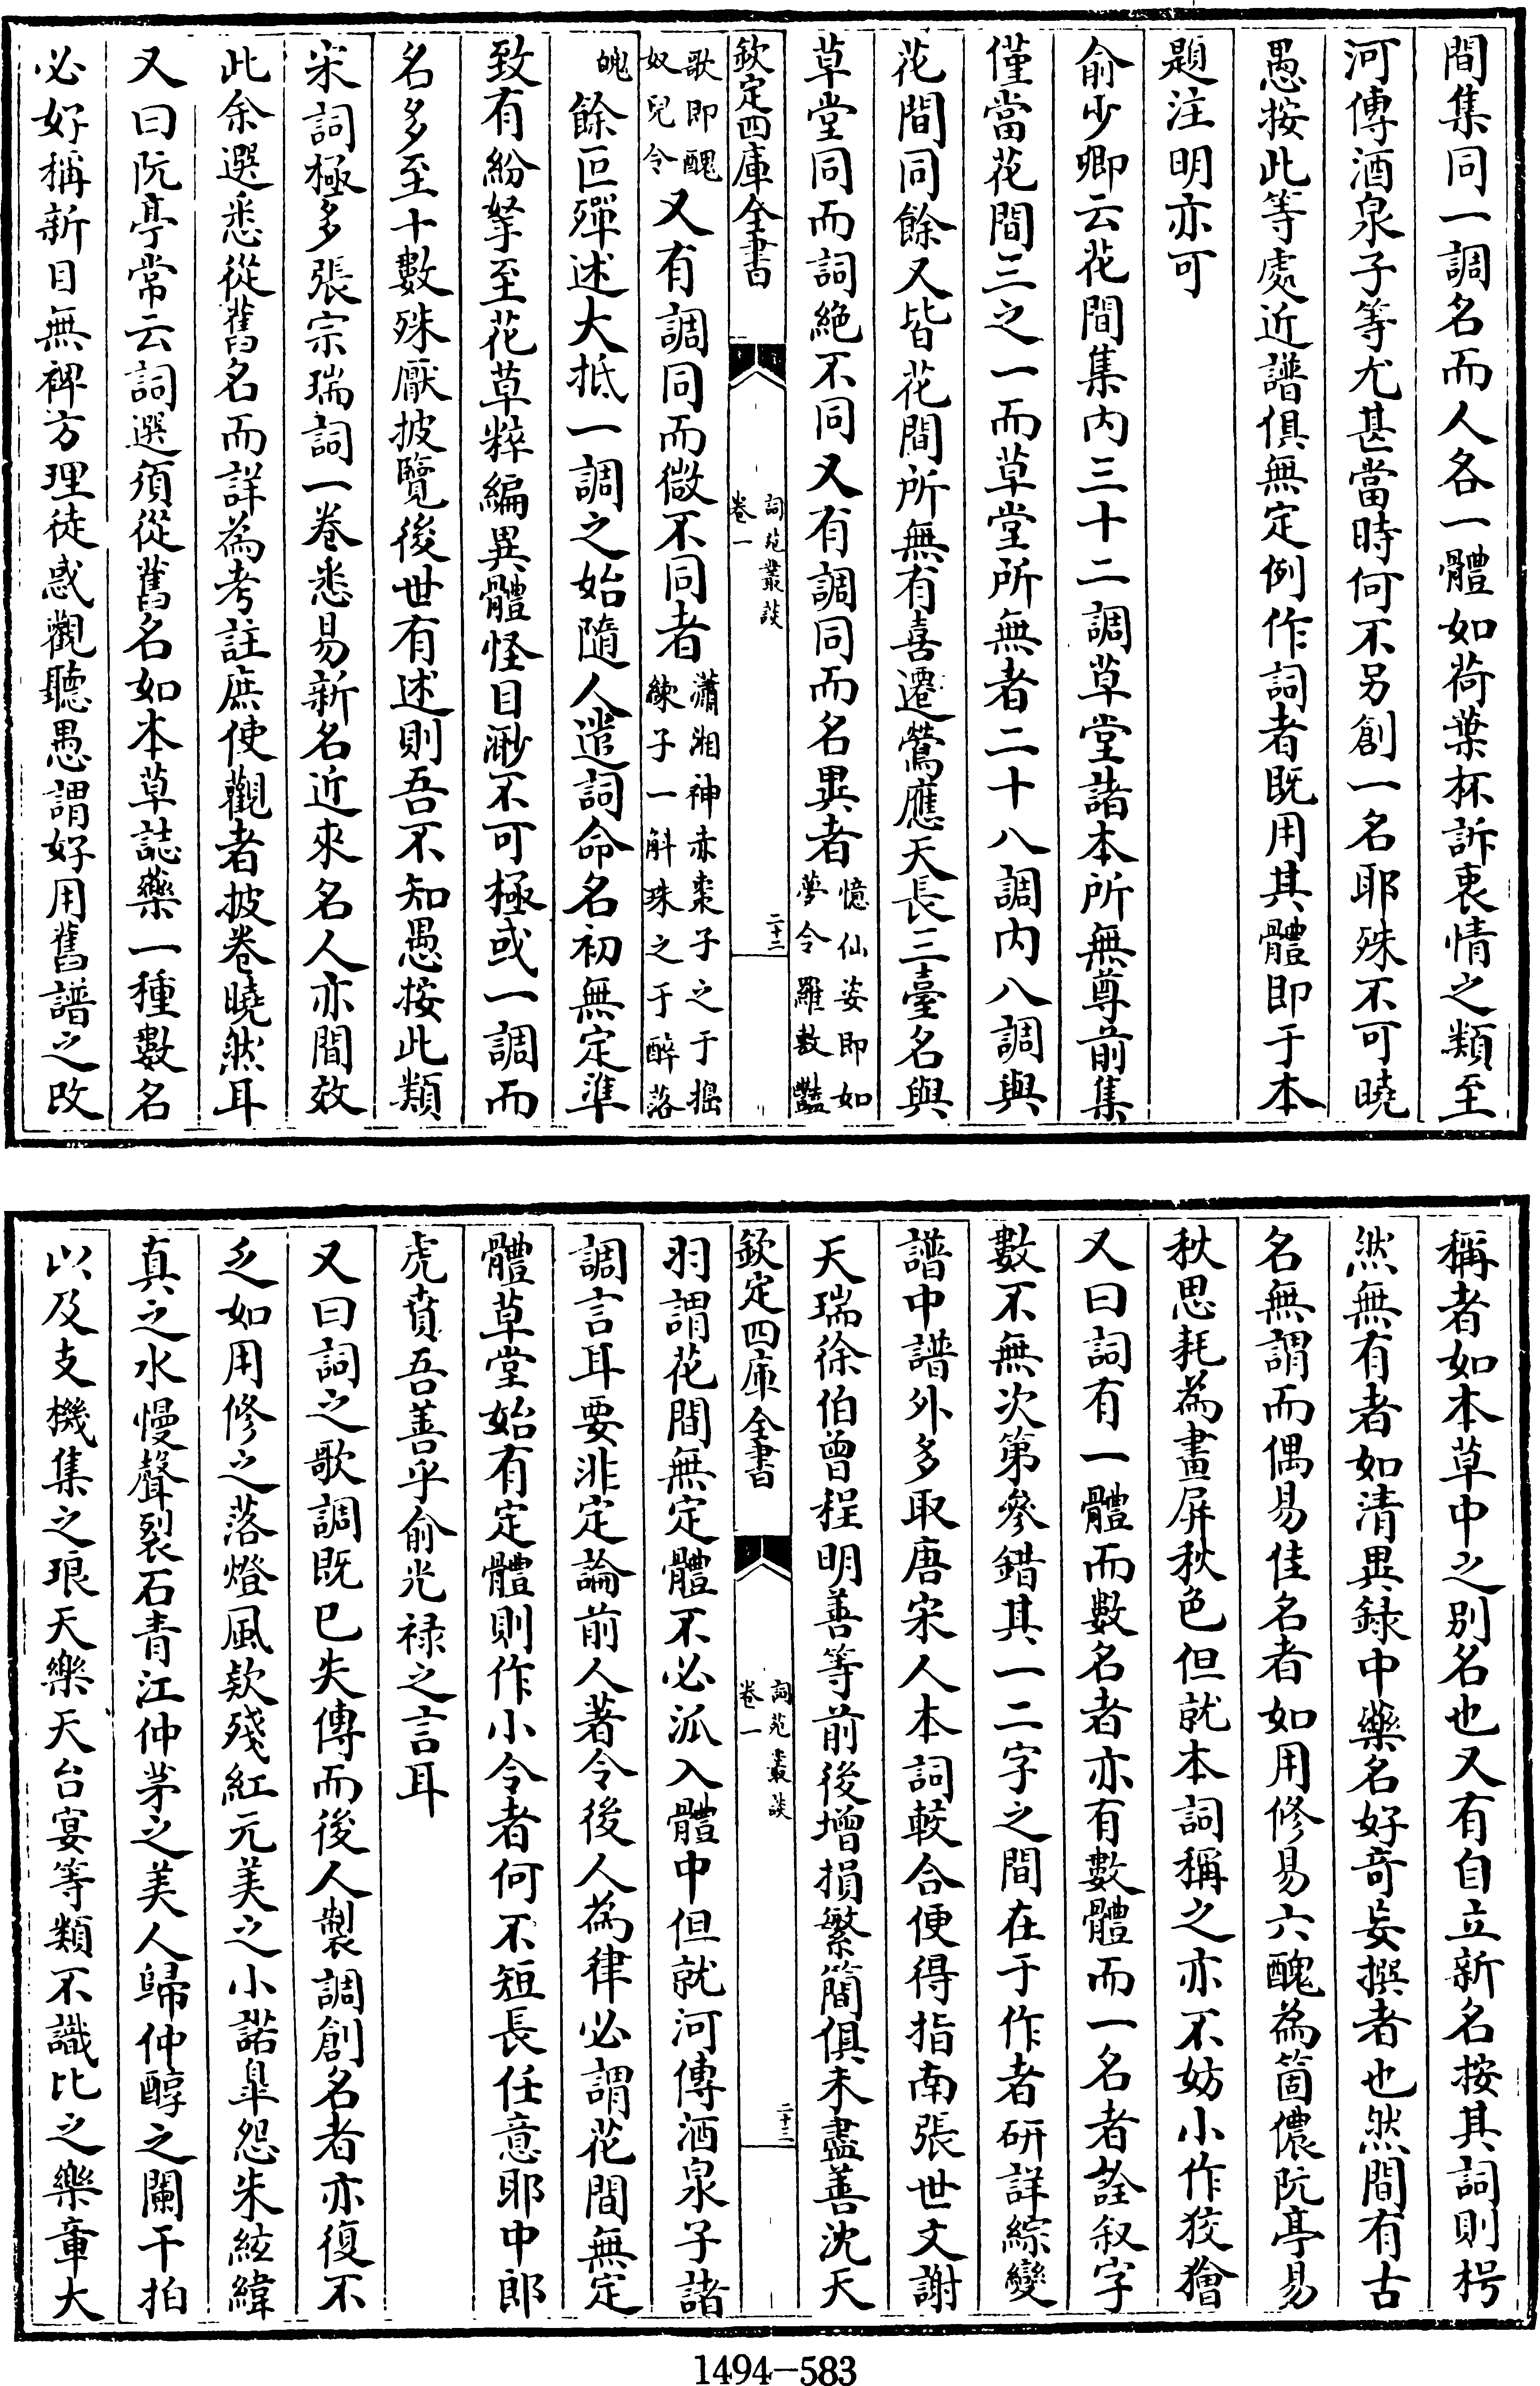 間集同一調名而人各一體如荷葉杯訴衷情之類至
河傳酒泉子等尤甚當時何不另創一名耶殊不可曉
愚按此等處近譜俱無定例作詞者既用其體即于本
題注明亦可
俞少卿云花間集内三十二調草堂諸本所無尊前集
僅當花間三之一而草堂所無者二十八調内八調與
花間同餘又皆花間所無有喜遷鶯應天長三臺名與
草堂同而詞絶不同又有調同而名異者憶仙姿即如夢令羅敷豔
欽定四庫全書
詞苑叢談
卷一
二十二
歌即醜奴兒令又有調同而微不同者瀟湘神赤棗子之于搗練子一斛珠之于醉落
魄餘叵殫述大抵一調之始隨人遣詞命名初無定準
致有紛拏至花草粹編異體怪目渺不可極或一調而
名多至十數殊厭披覽後世有述則吾不知愚按此類
宋詞極多張宗瑞詞一卷悉易新名近來名人亦間效
此余選悉從舊名而詳為考註庶使觀者披卷曉然耳
又曰阮亭常云詞選須從舊名如本草誌藥一種數名
必好稱新目無裨方理徒惑觀聽愚謂好用舊譜之改
稱者如本草中之别名也又有自立新名按其詞則枵
然無有者如清異録中藥名好奇妄撰者也然間有古
名無謂而偶易佳名者如用修易六醜為箇儂阮亭易
秋思耗為畫屏秋色但就本詞稱之亦不妨小作狡獪
又曰詞有一體而數名者亦有數體而一名者詮叙字
數不無次第參錯其一二字之間在于作者研詳綜變
譜中譜外多取唐宋人本詞較合便得指南張世文謝
天瑞徐伯曾程明善等前後增損繁簡俱未盡善沈天
欽定四庫全書
詞苑叢談
卷一
二十三
羽謂花間無定體不必派入體中但就河傳酒泉子諸
調言耳要非定論前人著令後人為律必謂花間無定
體草堂始有定體則作小令者何不短長任意耶中郎
虎賁吾善乎俞光禄之言耳
又曰詞之歌調既已失傳而後人製調創名者亦復不
乏如用修之落燈風欵殘紅元美之小諾臯怨朱絃緯
真之水慢聲裂石青江仲茅之美人歸仲醇之闌干拍
以及支機集之琅天樂天台宴等類不識比之樂章大
1494-583